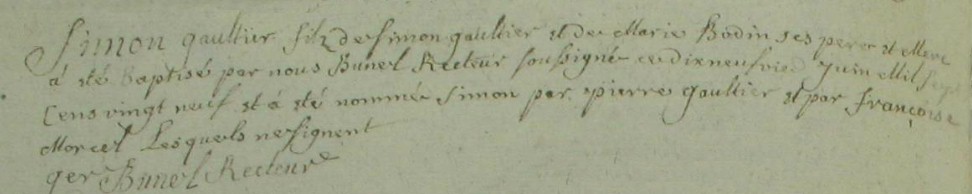 Simon gaultier filz de Simon gaultier et de Marie Bodin ses perer et Mere
á eté baptisé par nous Bunel Recteur soussigné ce dixneufvie Juin Mil sept
Cens vingt neuf et á eté nommé Simon par pierre gaultier et par françoise
Morcel Lesquels ne signent
ger Bunel Recteur